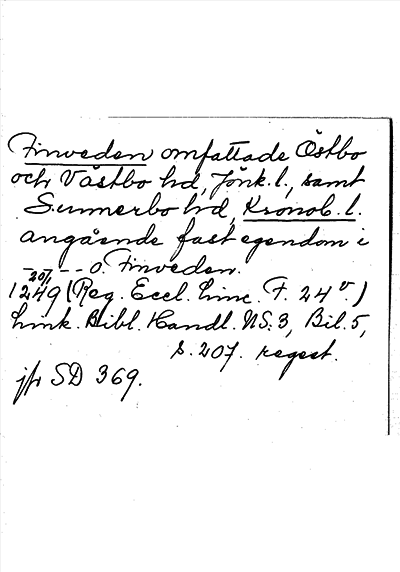 Finveden omfattade Östbo
och Västbo hd, Jönk. l., samt
Sunnerbo hd, Kronob. l.
angående fast egendom i
- - - o. Finveden.
20/1
1249 (Reg. Eccl. Linc. F. 24 v.)
Link. Bibl. Handl. NS: 3, Bil. 5,
s. 207. regest.
jfr SD 369.